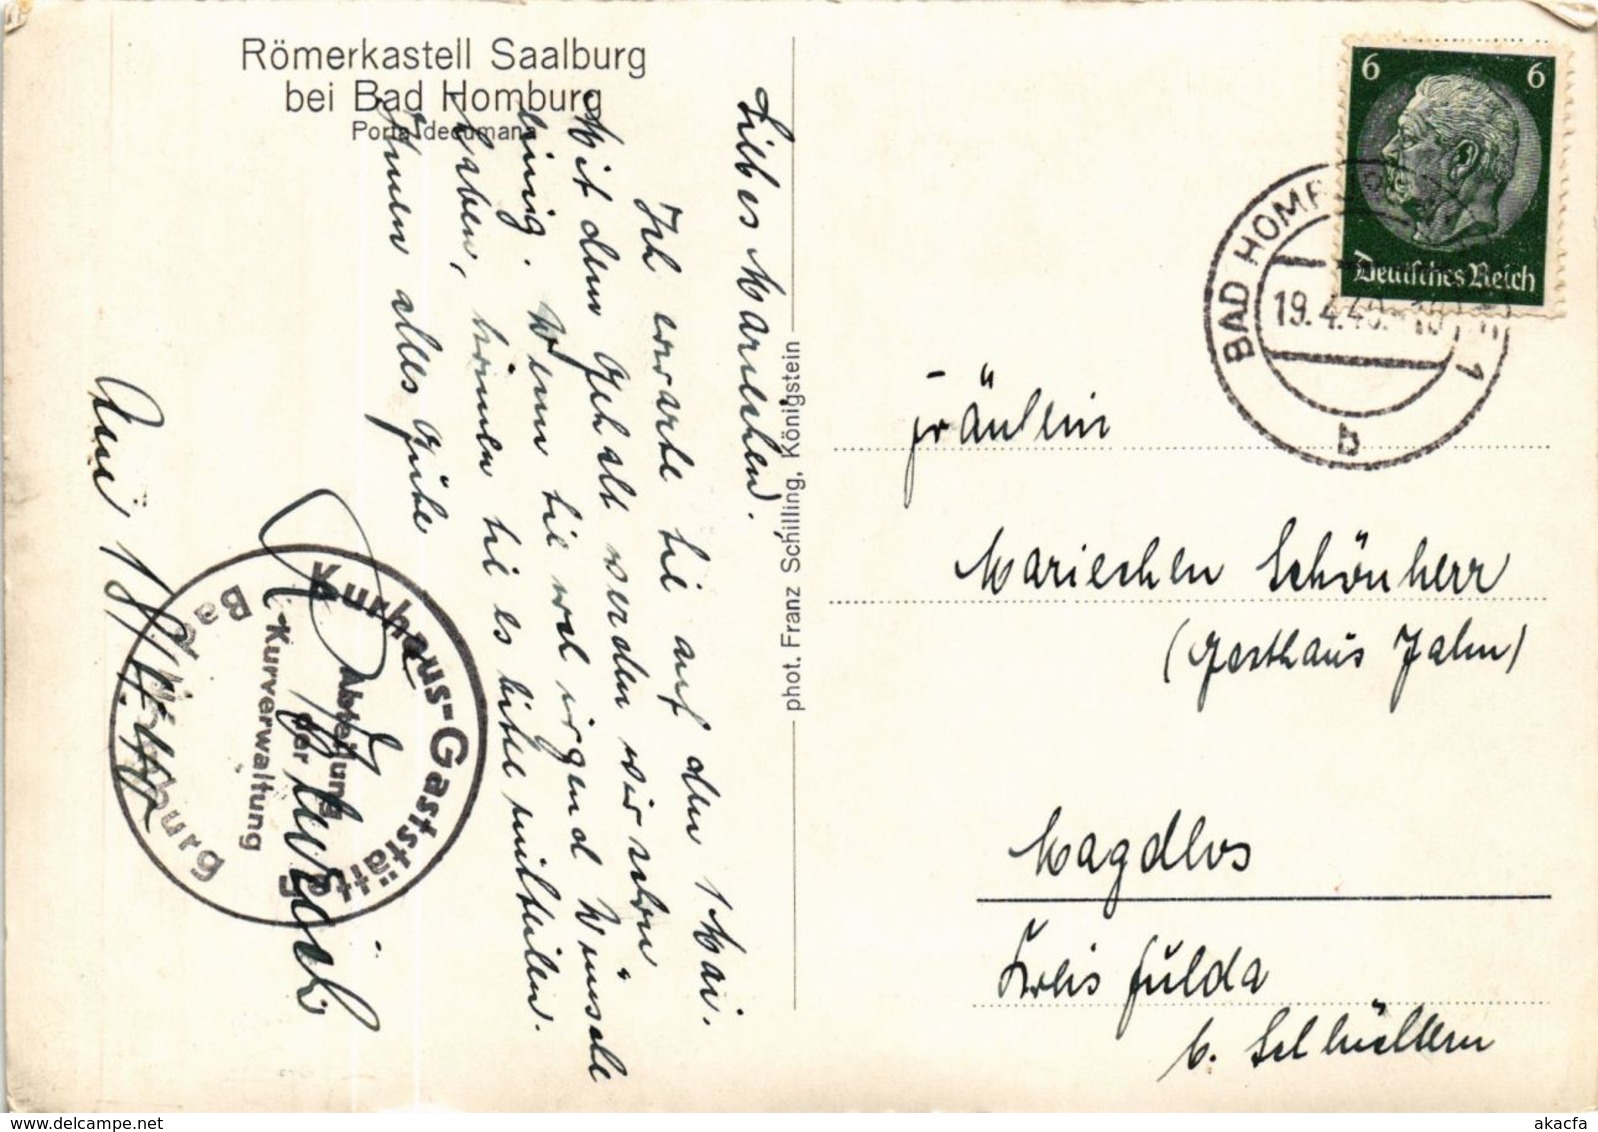 Römerkastell Saalburg
bei Bad Homburg
Porta decumana
Liebes Mariechen.
Ich erwarte Sie auf den 1 Mai.
Mit dem Gehalt werden wir schon
einig. Wenn Sie wol irgend Wünsche
haben, können Sie es bitte mitteilen.
Ihnen alles Gute
Kurhaus-Gaststätte
Bad Homburg
Abteilung
der
Kurverwaltung
phot. Franz Schilling, Königstein
6 6
Deutsches Reich
BAD HOMBURG 1
19.4.40.
b
Fräulein
Mariechen Schönherr
(Gasthaus Jahn)
Magdlos
Kreis Fulda
b. Schlüchtern
akacfa